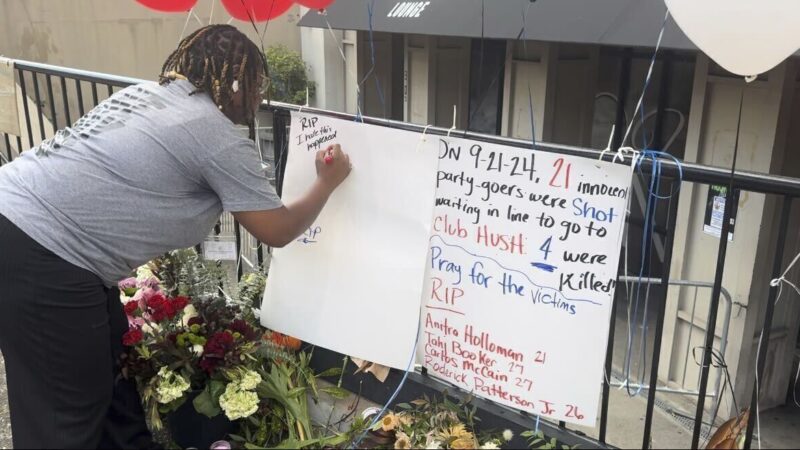 LOUNGE
RIP
I hate this
happened
RIP
ON 9-21-24, 21 innocent
party-goers were Shot
waiting in line to go to
Club HUSH. 4 were
Killed!
Pray for the victims
RIP
Anitra Holloman 21
Taj Booker 27
Carlos McCain 27
Roderick Patterson Jr 26